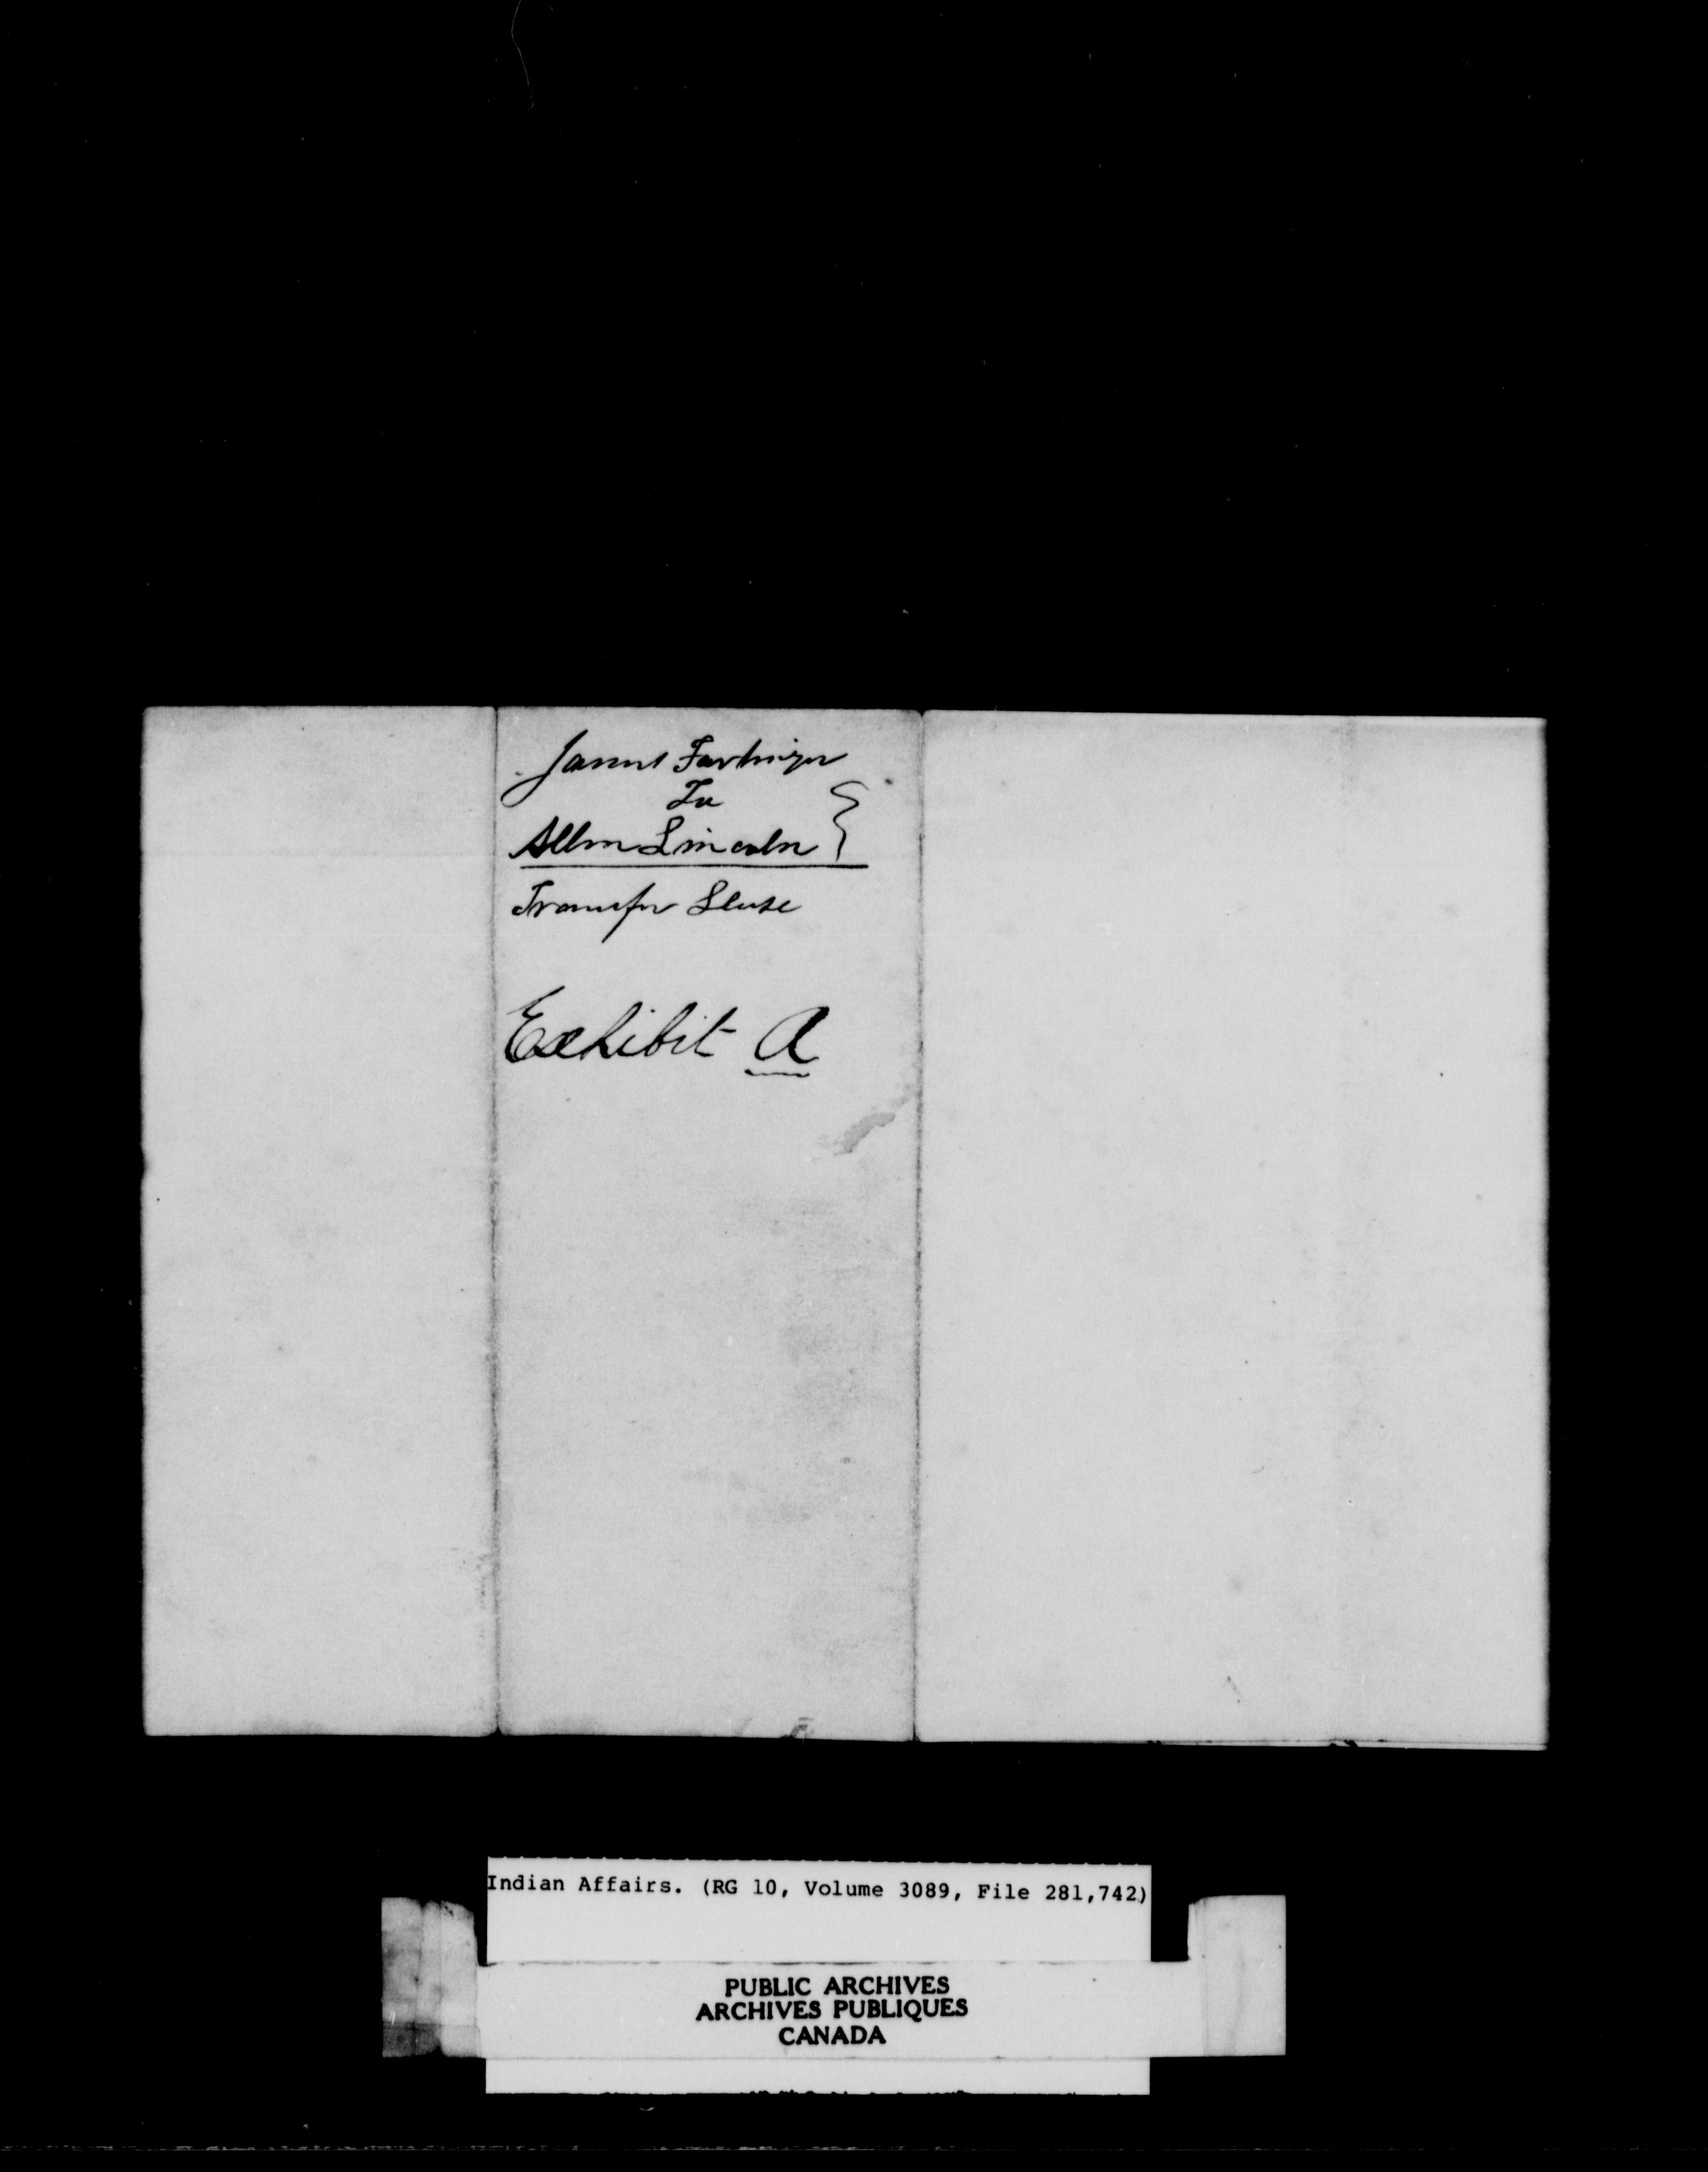 James Farlinger
To
Allen Lincoln
Transfer Lease
Exhibit A
Indian Affairs. (RG 10, Volume 3089, File 281,742)
PUBLIC ARCHIVES
ARCHIVES PUBLIQUES
CANADA